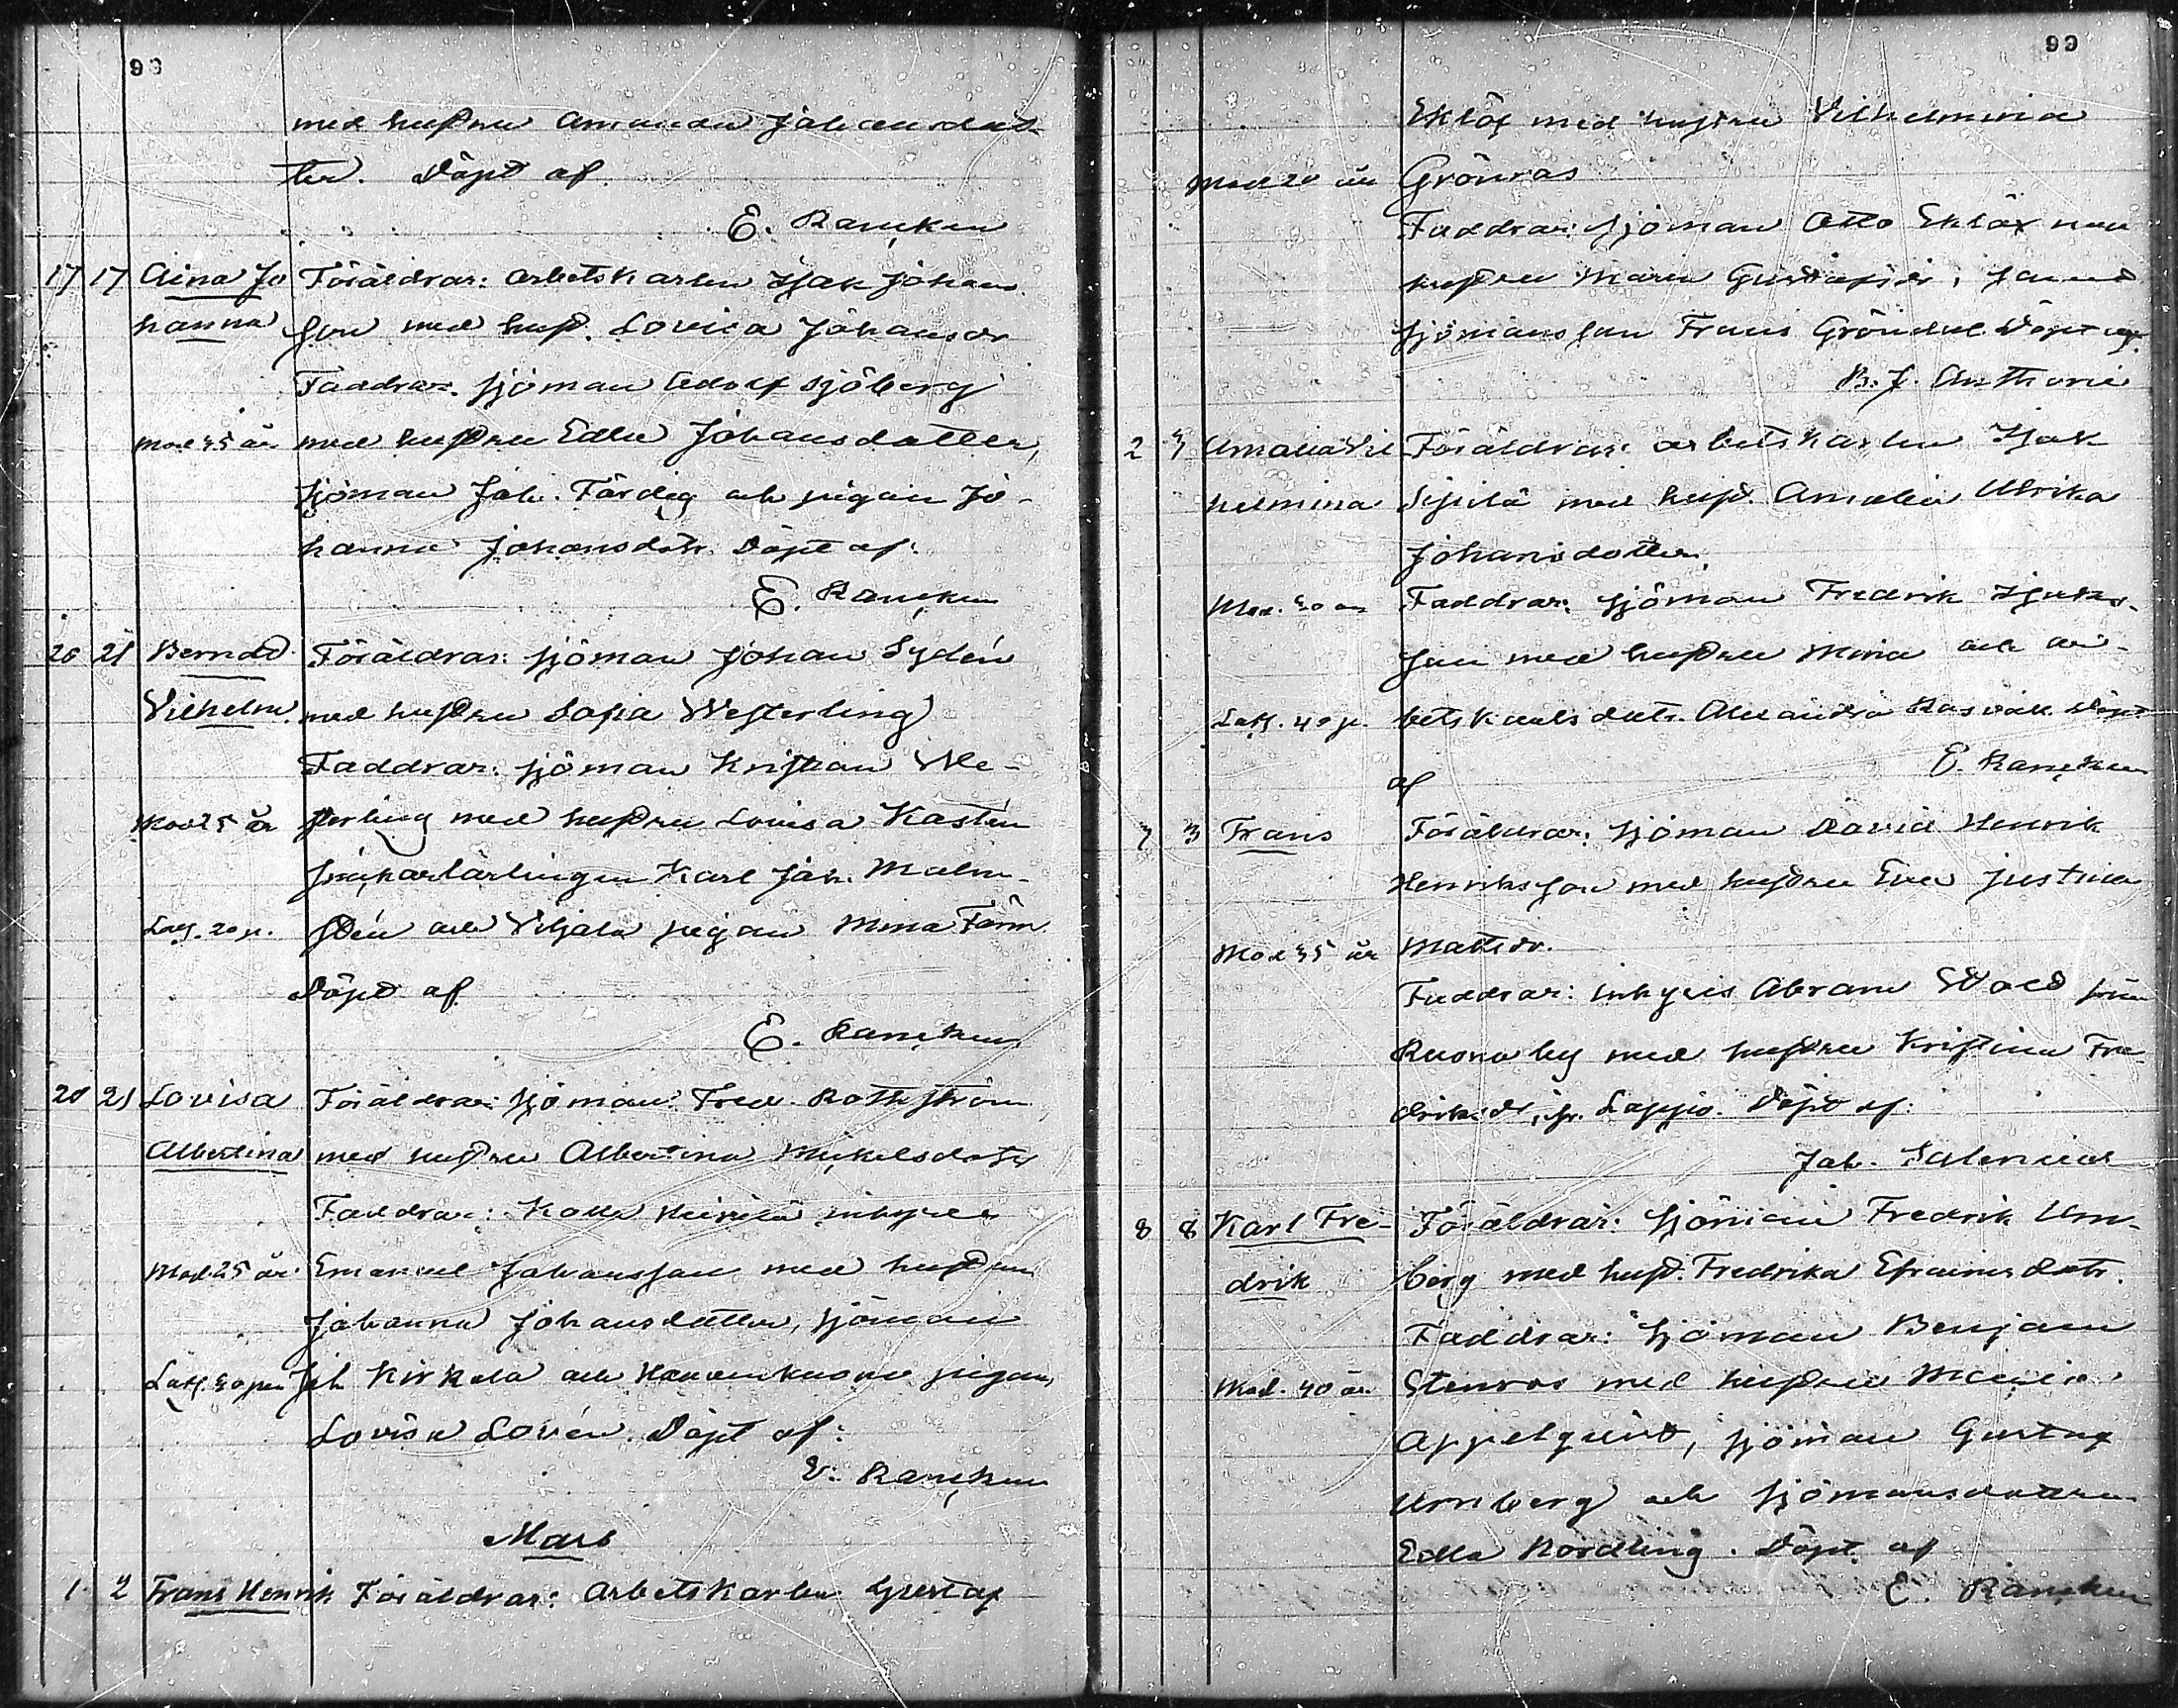 99
med hustrun Amanda Johansdot-
ter. Döpt af
E. Rancken
17 17 Aina Jo Föräldrar: arbetskarlen Isak Johans
hanna son med hust. Lovisa Johansdr
Faddrar. sjöman Adolf Sjöberg
Mod 35 år med hustrun Edla Johansdotter,
sjöman Joh. Färdig och pigan Jo-
hanna Johansdotr. Döpt af:
E. Rancken
20 21 Berndt Föräldrar: sjöman Johan Sydén
Vilhelm. med hustrun Sofia Westerling
Faddrar: sjöman Kristian We-
Mod 25 år sterling med hustrun Lovisa Kastén
snickarlärlingen Karl Joh. Malm-
Latf. 20 p. stén och Viljala pigan Mina Färm
Döpt af
E. Rancken
20 21 Lovisa Föräldrar: sjöman Fred. Rothström
Albertina med hustrun Albertina Mikelsdotter
Faddrar: inhyses
Mod. 25 år. Emanuel Johansson med hustrun
Johanna Johansdotter, sjöman
Latf. Joh Kirkola och pigan
Lovisa Lovén. Döpt af:
E. Rancken
Mars
1 2 Frans Henrik Föräldrar: Arbetskarlen Gustaf
99
Eklöf med hustrun Vilhelmina
Mod 20 år Grönroos
Faddrar: sjöman Otto Eklöf med
hustrun Maria Gustafsdr, samt
sjömansson Frans Gröndal. Döpt af.
B. J. Anthoni
2 3 Amalia Vil Föräldrar: arbetskarlen Isak
helmina Sipilä med hust. Amalia Ulrika
Johansdotter.
Mod. 30 år Faddrar: sjöman Fredrik Isaks-
son med hustrun Mina och ar-
Latf. 40 p. betskarlsdotr. Alexandra Döpt
af E. Rancken
3 Frans Föräldrar: sjöman David Henrik
Henriksson med hustrun Eva Justina
Mod 35 år Mattsdr.
Faddrar: inhyses Abram från
Ruona by med hustrun Kristina Fre
driksdr, fr. Lappio. Döpt af:
Joh. Salenius
8 8 Karl Fre- Föräldrar: sjöman Fredrik Urn-
drik berg med hust. Fredrika Efraimsdotr.
Faddrar: sjöman Benjam
Mod. 40 år. Stenroos med hustrun Maria
Appelqvist, sjöman Gustaf
Urnberg och sjömansdottern
Edla Nordling. Döpt af
E. Rancken